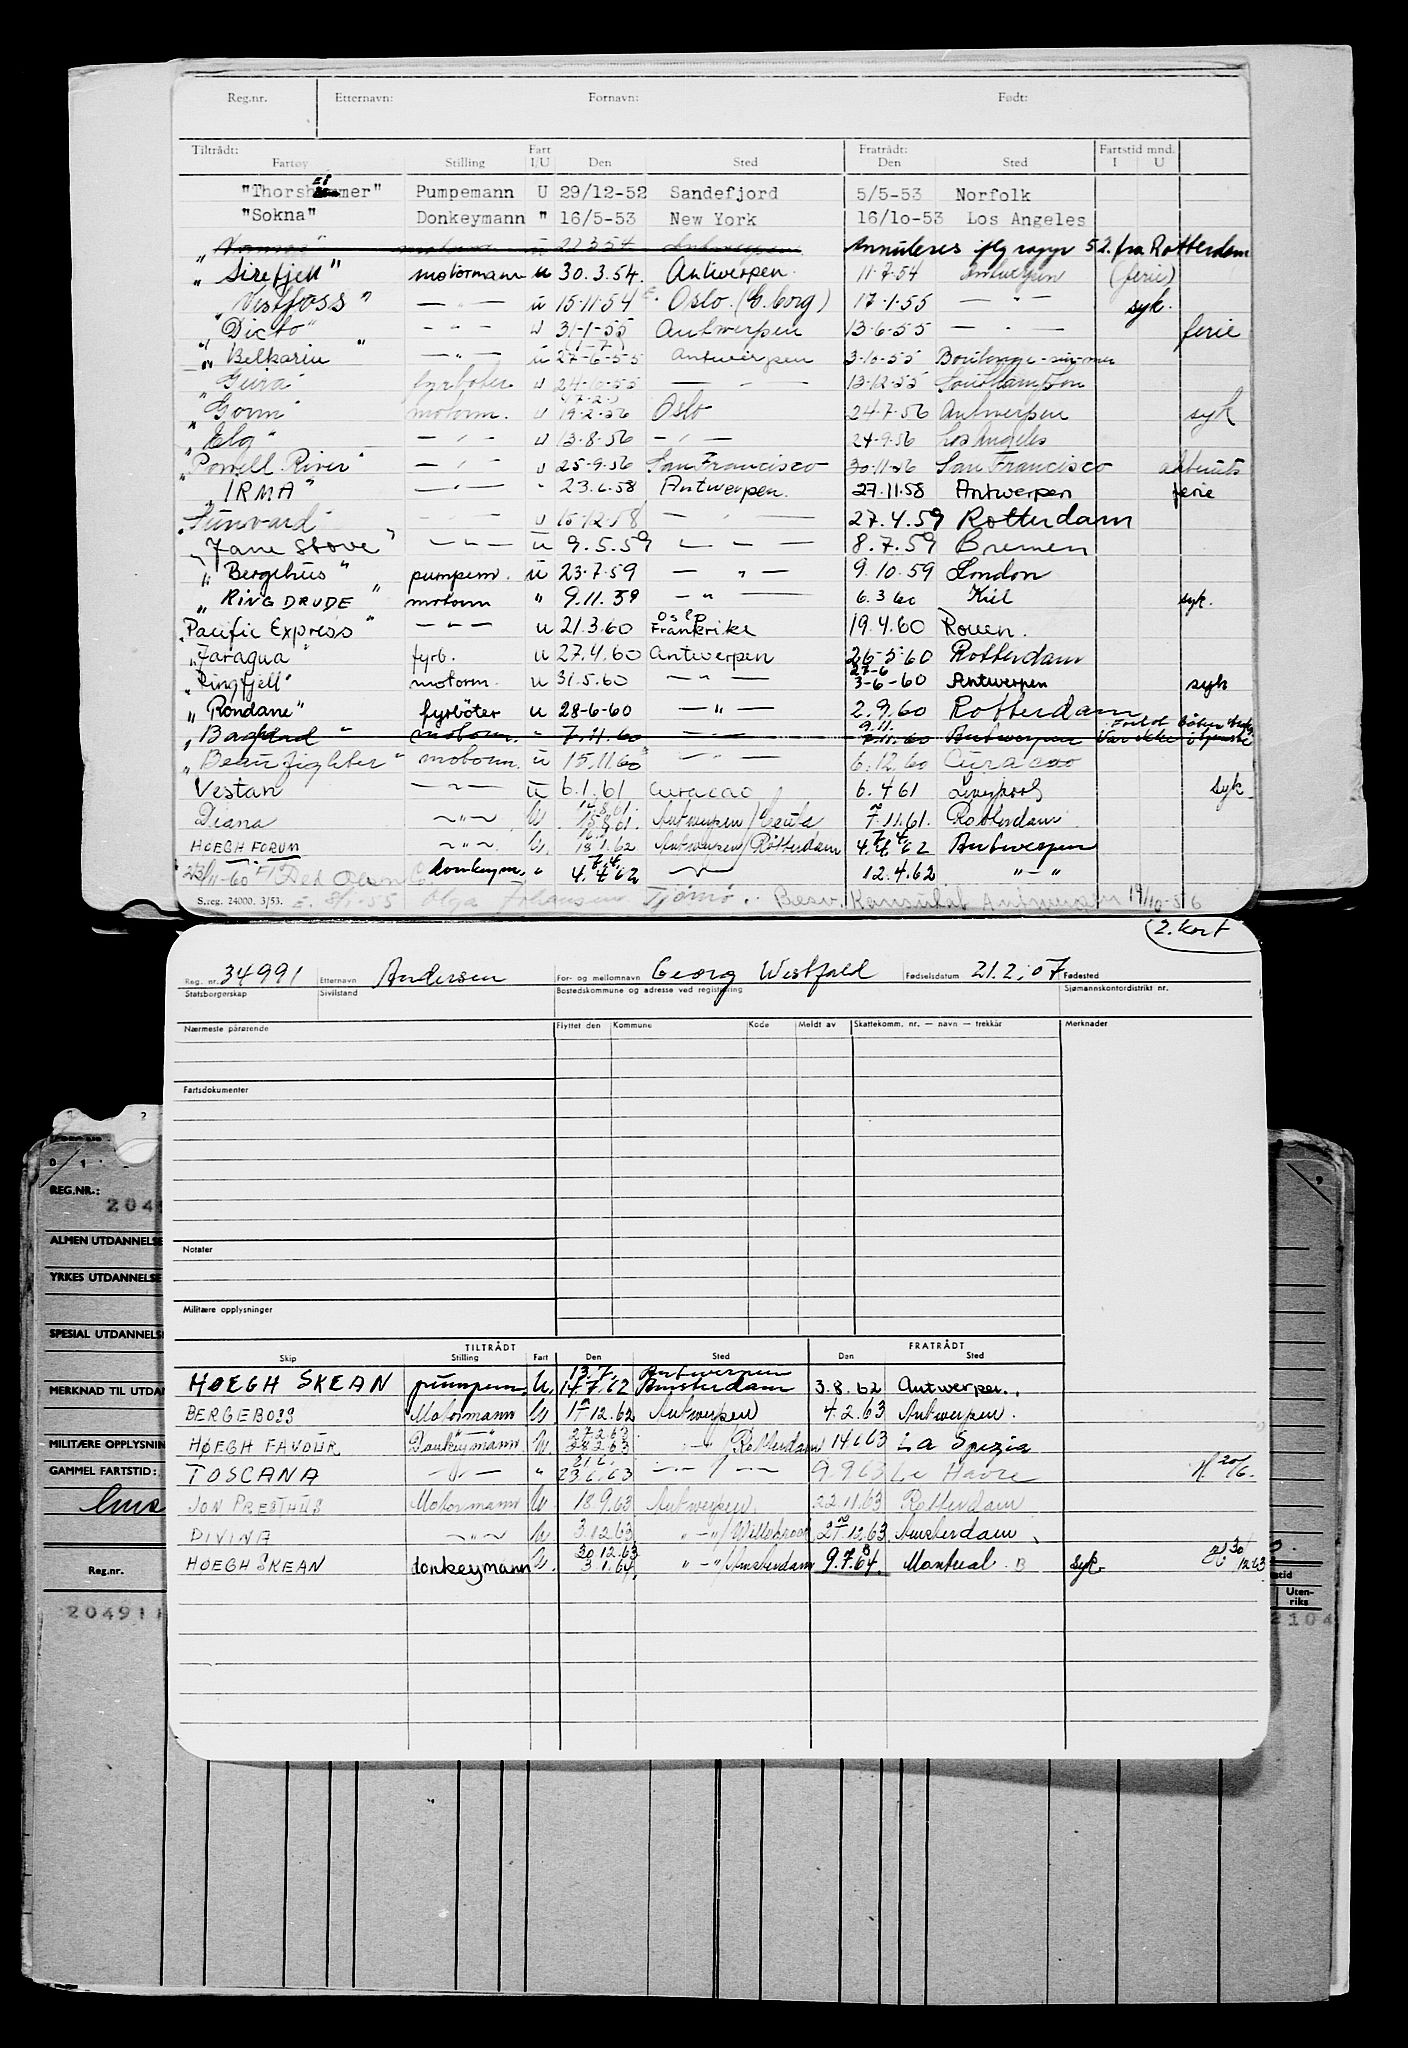 Reg.nr. Etternavn: Fornavn: Født:
Tiltrådt: Fart Fratrådt: Fartstid mnd.
Fartøy Stilling I/U Den Sted Den Sted I U
"Thorsh mer" Pumpemann U 29/12-52 Sandefjord 5/5-53 Norfolk
"Sokna" Donkeymann " 16/5-53 New York 16/10-53 Los Angeles
u 22.3.54 Antwerpen Annuleres iflg rapp 5.2. fra Rotterdam
"Sirefjell" motormann u 30.3.54. Antwerpen. 11.7.54 Antwerpen (ferie)
"Vestfoss" — " — u 15.11.54 Oslo. (G.borg) 17.1.55 — " — syk.
"Dicto" — " — u 31-1-55 Antwerpen 13-6-55 — " — ferie
"Belkarin" — " — u 27-6-55 Antwerpen 3-10-55 Boulogne-sur-mer
"Geira" fyrbøter u 24-10-55 — " — 13-12-55 Southampton
"Gorm" motorm. u 19.2.56 Oslo 24.7.56 Antwerpen syk
"Elg" — " — u 13.8.56 — " — 24.9.56 Los Angeles
"Powell River" — " — u 25-9-56 San Francisco 30-11-56 San Francisco
"IRMA" — " — " 23.6.58 Antwerpen. 27.11.58 Antwerpen ferie
"Sunvard" — " — u 15.12.58 — " — 27.4.59 Rotterdam
"Jane Stove" — " — u 9.5.59 — " — 8.7.59 Bremen
"Bergehus" pumpem. u 23.7.59 — " — 9.10.59 London
"RINGDRUDE" motorm " 9.11.59 — " — 6.3.60 Kiel syk.
Oslo
"Pacific Express" — " — u 21.3.60 Frankrike 19.4.60 Rouen.
"Taragua" fyrb. u 27.4.60 Antwerpen 26-5-60 Rotterdam
27-6
"Ringfjell" motorm. u 31.5.60 — " — 3-6-60 Antwerpen syk
"Rondane" fyrbøter u 28-6-60 — " — 2.9.60 Rotterdam
9.11. Forlot båten
" " motorm. " 7.11.60 — " — 7.11.60 Antwerpen Var ikke i tjeneste
"Beaufighter" motorm. u 15.11.60 — " — 6.12.60 Curacao
Vestan — " — u 6.1.61 Curacao 6.4.61 Liverpool syk
Diana — " — U. 15.8.61. Antwerpen/Ceuta 7.11.61. Rotterdam
HOEGH FORUM — " — U. 18.1.62 Antwerpen/Rotterdam 4.4.62 Antwerpen
donkeym. " 4.4.62 — " — 12.4.62 " — "
S.reg. 24000. 3/53. E. 8/1-55 Olga Johansen Tjømø. Besv. Konsulat Antwerpen 19/10-56
2. kort
Reg. nr. 34991 Etternavn Andersen For- og mellomnavn Georg Westfald Fødselsdatum 21.2.07 Fødested
Statsborgerskap Sivilstand Bostedskommune og adresse ved registrering Sjømannskontordistrikt nr.
Nærmeste pårørende Flyttet den Kommune Kode Meldt av Skattekomm. nr. — navn — trekkår Merknader
Fartsdokumenter
Notater
Militære opplysninger
TILTRÅDT FRATRÅDT
Skip Stilling Fart Den Sted Den Sted
13.7. Antwerpen
HOEGH SKEAN pumpem. U. 14.7.62 Amsterdam 3.8.62 Antwerpen.
BERGEBOSS Motormann U 1.12.62 Antwerpen 4.2.63 Antwerpen.
27.2.63
HØEGH FAVOUR Donkeymann U 28.2.63 — " —/Rotterdam 14.6.63 La Spezia
21.6.
TOSCANA — " — " 23.6.63 — " — / — " — 9.9.63 Le Havre 20/6.
JON PRESTHUS Motormann U. 18.9.63 Antwerpen. 22.11.63 Rotterdam
DIVINA — " — U 3.12.63 " — "/Willebroek 27.12.63 Amsterdam
30.12.63
HOEGH SKEAN donkeymann U. 3.1.64. " — "/Amsterdam 9.7.64. Montreal. B syk. 30/12.63
0 1
REG.NR.:
204
ALMEN UTDANNELSE
YRKES UTDANNELSE
SPESIAL UTDANNELSE
MERKNAD TIL UTDAN
MILITÆRE OPPLYSNIN
GAMMEL FARTSTID:
Reg.nr.
Uten-
riks
204911 2104
9